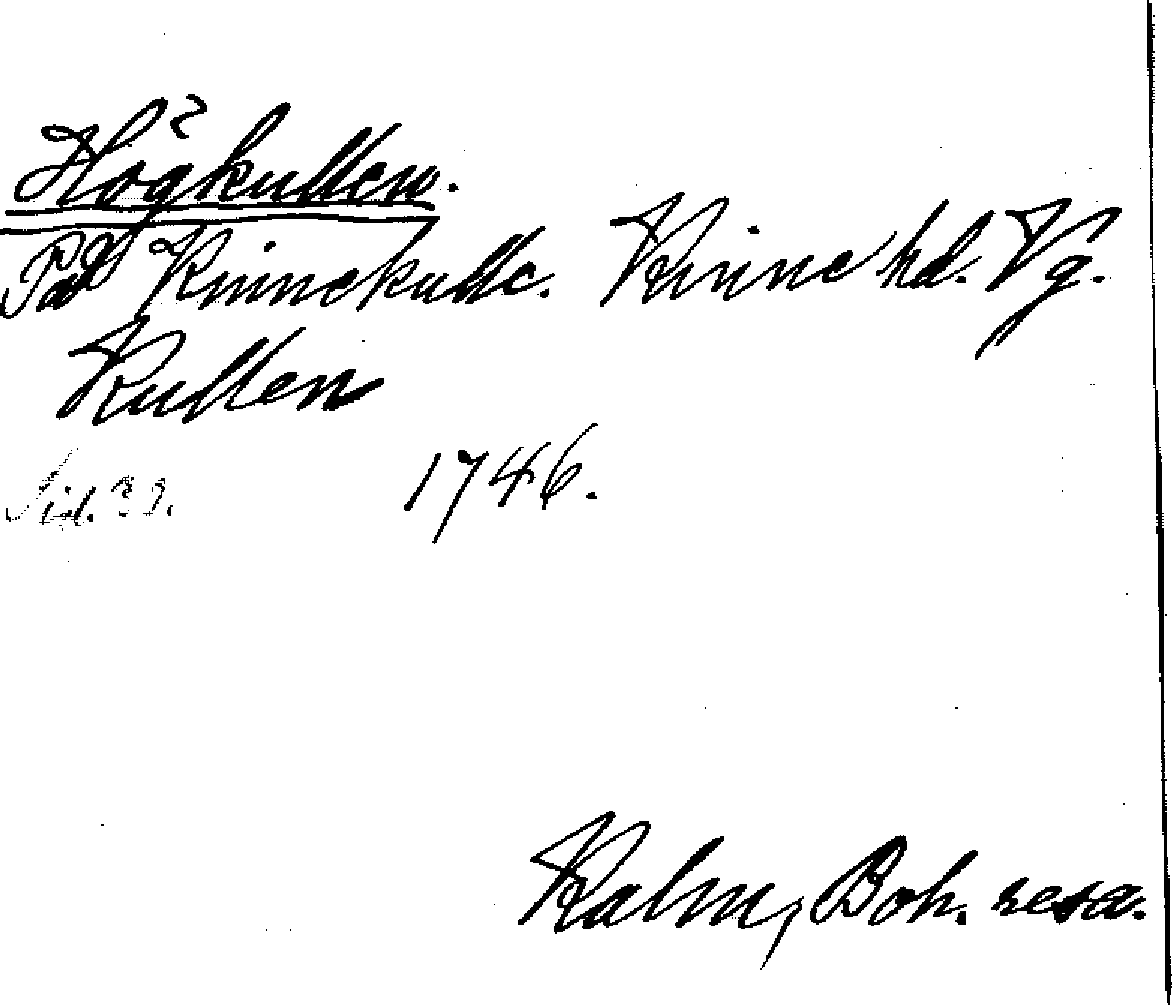 Högkullen.
På Kinnekulle. Kinne hd. Vg.
Kullen
Sid. 33. 1746.
Kalm, Boh. resa.